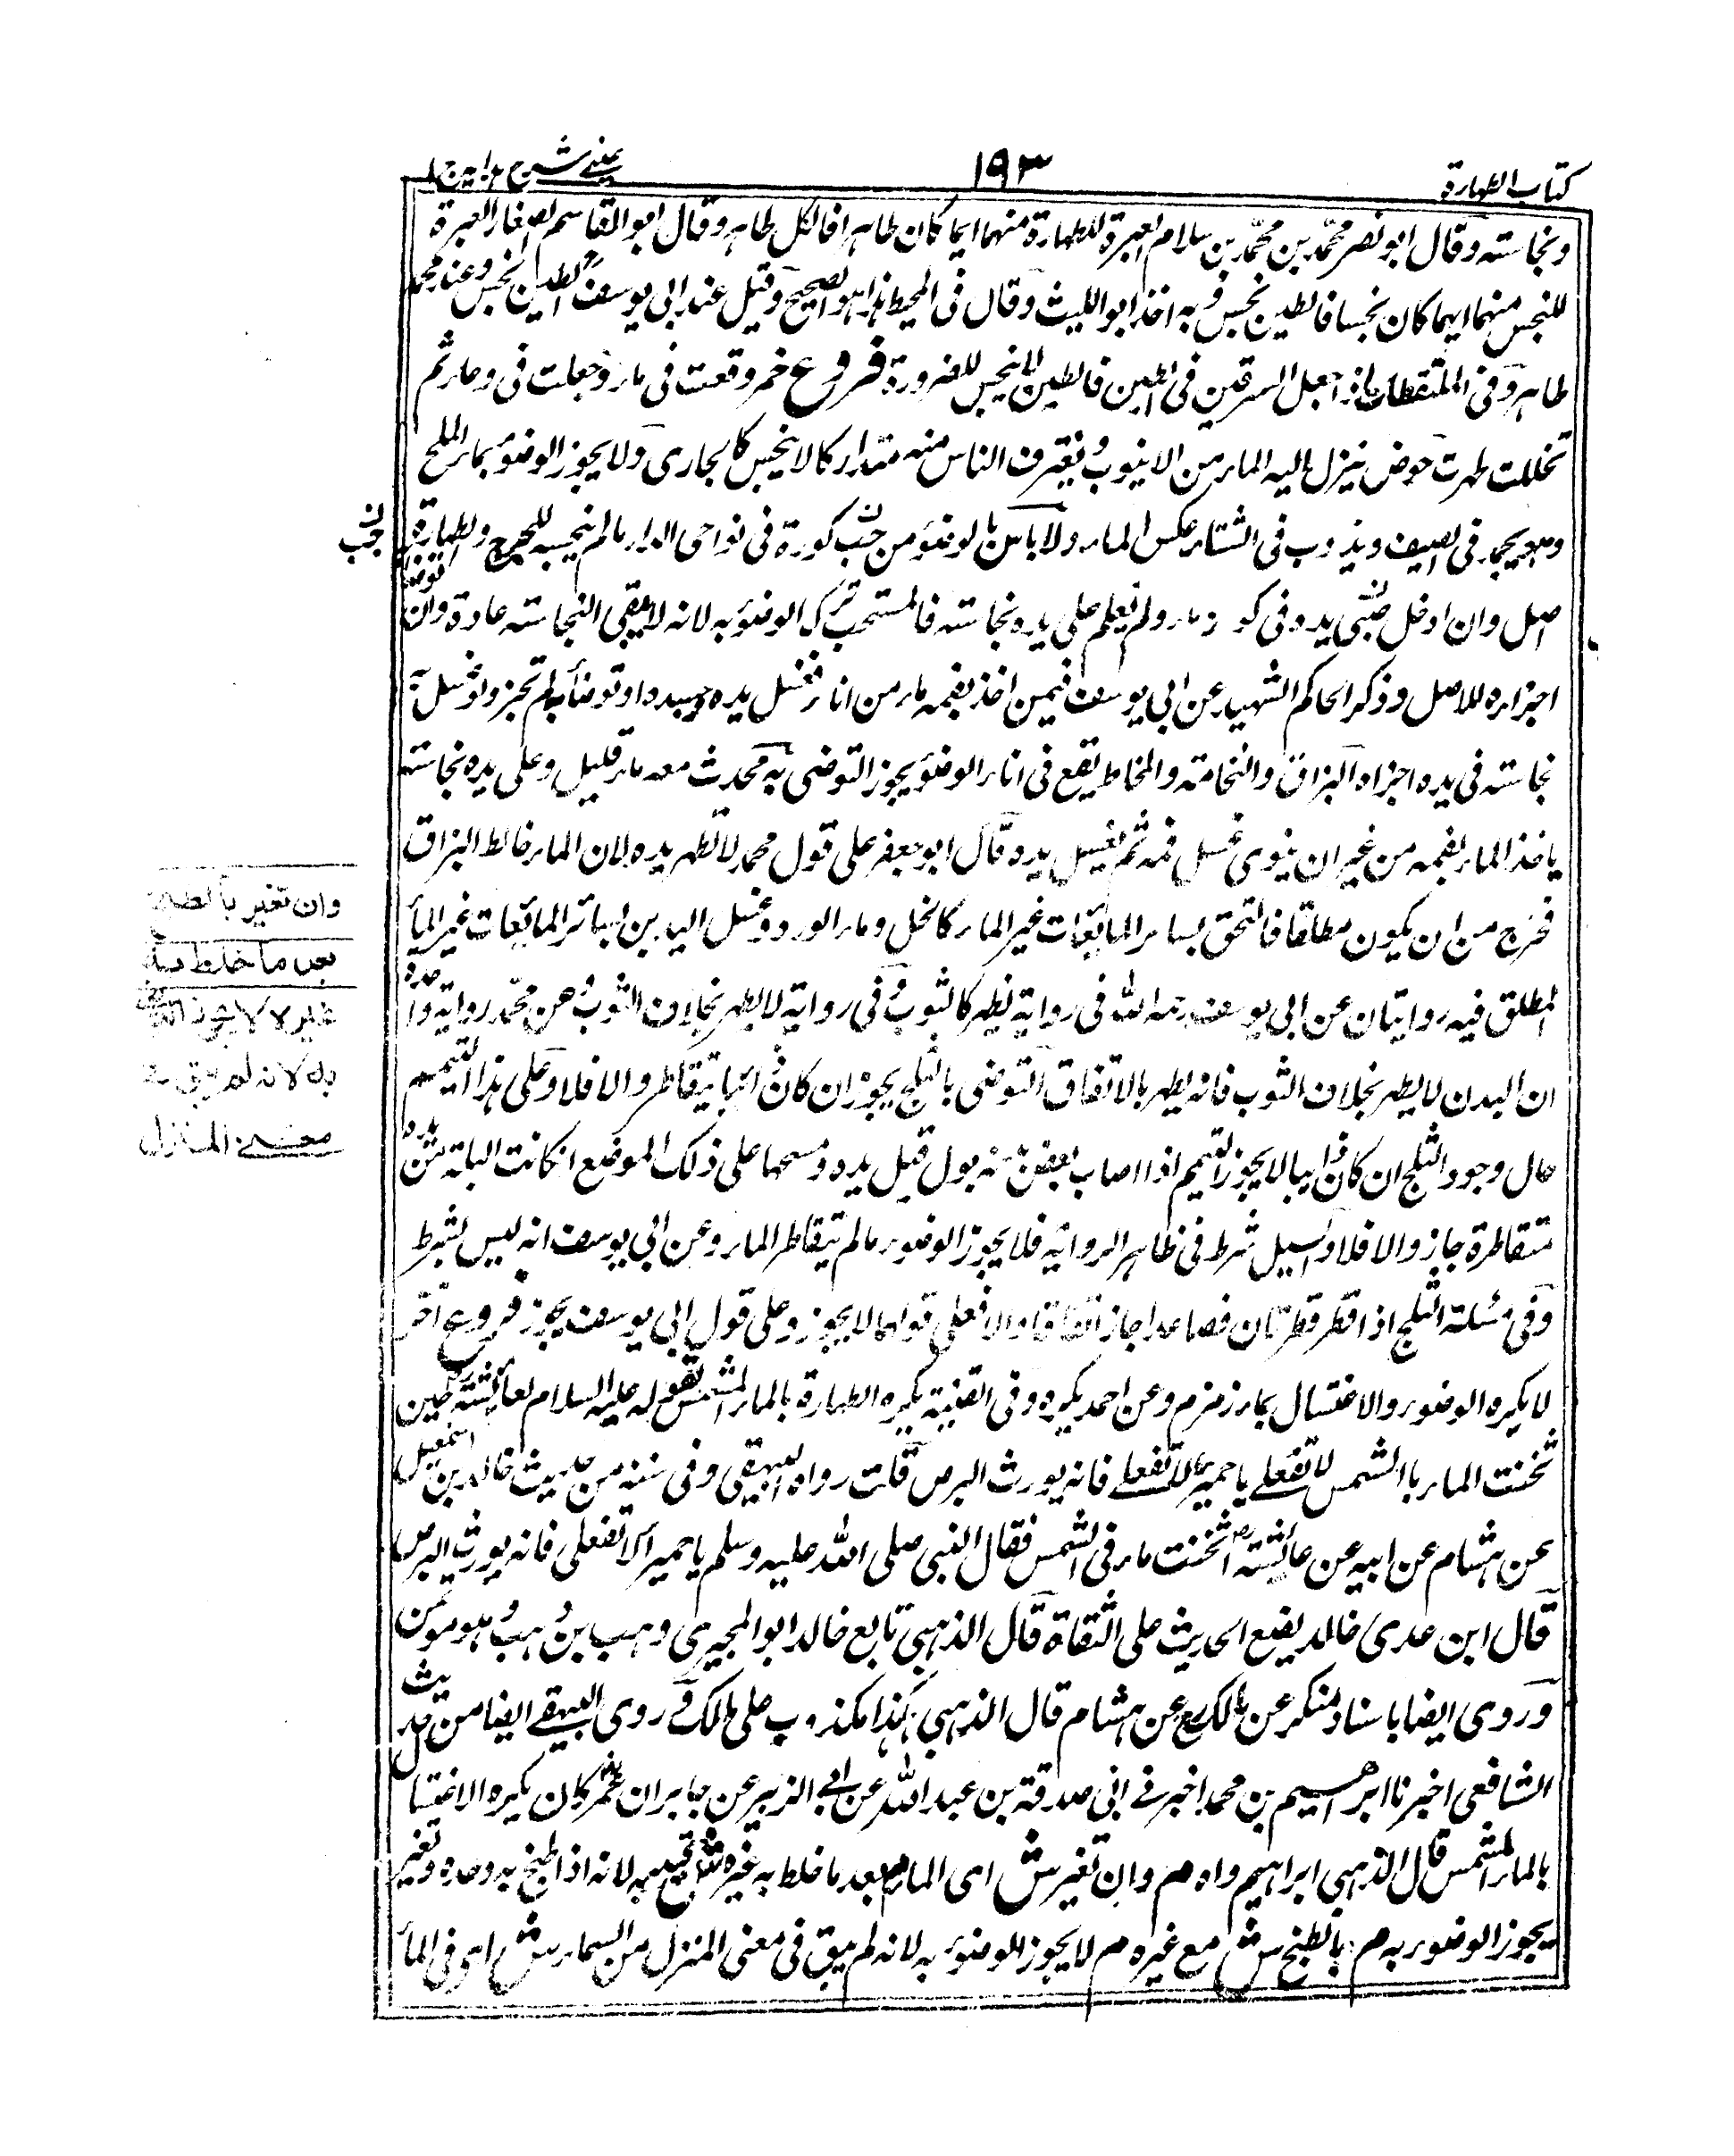 كتاب الطهارة
١٩٣
عيني شرح هداية ج ١
ونجاسته وقال ابو نصر محمد بن محمد بن سلام العبرة للطهارة منهما ايما كان طاهرا فالكل طاهر وقال ابو القاسم الصفار العبرة
للنجس منهما ايهما كان نجسا فالطين نجس وبه اخذ ابو الليث وقال فى المحيط هذا هو الصحيح وقيل عند ابى يوسف الطين نجس وعند محمد
طاهر وفى الملتقطات اذا جعل السرقين فى الطين فالطين لا ينجس للضرورة فروع خمر وقعت فى ماء وجعلت فى وعاء ثم
تخللت طهرت حوض ينزل اليه الماء من الانبوب ويغترف الناس منه متداركا لا ينجس كالجارى ولا يجوز الوضوء بماء الملح
وهو يجمد فى الصيف ويذوب فى الشتاء عكس الماء ولا باس بالوضوء من حب كوزه فى نواحى الدار مالم ينجسه للحرج والطهارة
اصل وان ادخل صبى يده فى كوز ماء ولم يعلم على يده نجاسته فالمستحب ترك الوضوء به لانه لا يتقى النجاسته عادة وان توضأ
اجزاه للاصل وذكر الحاكم الشهيد عن ابى يوسف فيمن اخذ بفمه ماء من اناء فغسل يده وجسده او توضأ به لم تجز ولو غسل به
نجاسته فى يده اجزاه البزاق والنخامة والمخاط يقع فى اناء الوضوء يجوز التوضى به محدث معه ماء قليل وعلى يده نجاسته
ياخذ الماء بفمه من غير ان ينوى غسل فمه ثم يغسل يده قال ابو جعفر على قول محمد لا تطهر يده لان الماء خالط البزاق
فخرج من ان يكون مطلقا فالتحق بسائر المائعات غير الماء كالخل وماء الورد وغسل اليدين بسائر المائعات غير الماء
المطلق فيه روايتان عن ابى يوسف رحمه الله فى رواية يطهر كالثوب وفى رواية لا يطهر بخلاف الثوب وعن محمد رواية واحدة
ان البدن لا يطهر بخلاف الثوب فانه يطهر بالاتفاق التوضى بالثلج يجوز ان كان ذائبا يتقاطر والا فلا وعلى هذا التيمم
حال وجود الثلج ان كان ذايبا لا يجوز التيمم اذا اصاب بعض بدنه بول قبل يده ومسحها على ذلك الموضع ان كانت البلة من يده
متقاطرة جاز والا فلا والسيل شرط فى ظاهر الرواية فلا يجوز الوضوء مالم يتقاطر الماء وعن ابى يوسف انه ليس بشرط
وفى مسئلة الثلج اذا قطر قطرتان فصاعدا جاز اتفاقا والا فعلى قولهما لا يجوز وعلى قول ابى يوسف يجوز فروع اخر
لا يكره الوضوء والاغتسال بماء زمزم وعن احمد يكره وفى القنية يكره الطهارة بالماء المشمس لقوله عليه السلام لعائشة حين
سخنت الماء بالشمس لا تفعلى يا حميراء لا تفعلى فانه يورث البرص قلت رواه البيهقى وفى سننه من حديث خالد بن اسمعيل
عن هشام عن ابيه عن عائشة اسخنت ماء فى الشمس فقال النبى صلى الله عليه وسلم يا حميراء لا تفعلى فانه يورث البرص
قال ابن عدى خالد يضع الحديث على الثقاة قال الذهبى تابع خالد ابو البخترى وهب بن وهب وهو مؤتمن
وروى ايضا باسناد منكر عن مالك عن هشام قال الذهبى هذا مكذوب على مالك وروى البيهقى ايضا من حديث
الشافعى اخبرنا ابراهيم بن محمد اخبرنى صدقة بن عبد الله عن ابى الزبير عن جابر ان عمر كان يكره الاغتسال
بالماء المشمس قال الذهبى ابراهيم واه م وان تغير ش اى الماء م بعد ما خلط به غيره ش قيد به لانه اذا طبخ به وحده وتغير
يجوز الوضوء به م بالطبخ ش مع غيره م لا يجوز الوضوء به لانه لم يبق فى معنى المنزل من السماء ش اى فى الماء
حب
وان تغير بالطبخ
بعد ما خلط به
غيره لا يجوز التوضى
به لانه لم يبق فى
معنى المنزل